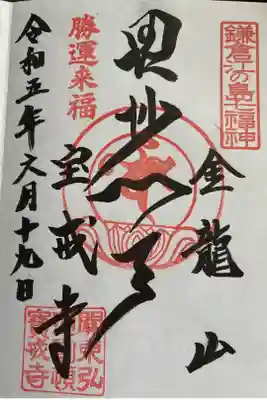 鎌倉江の島七福神
金龍山
毘沙門天
勝運来福
宝戒寺
令和五年六月十九日
關東弘
頓
寶戒寺